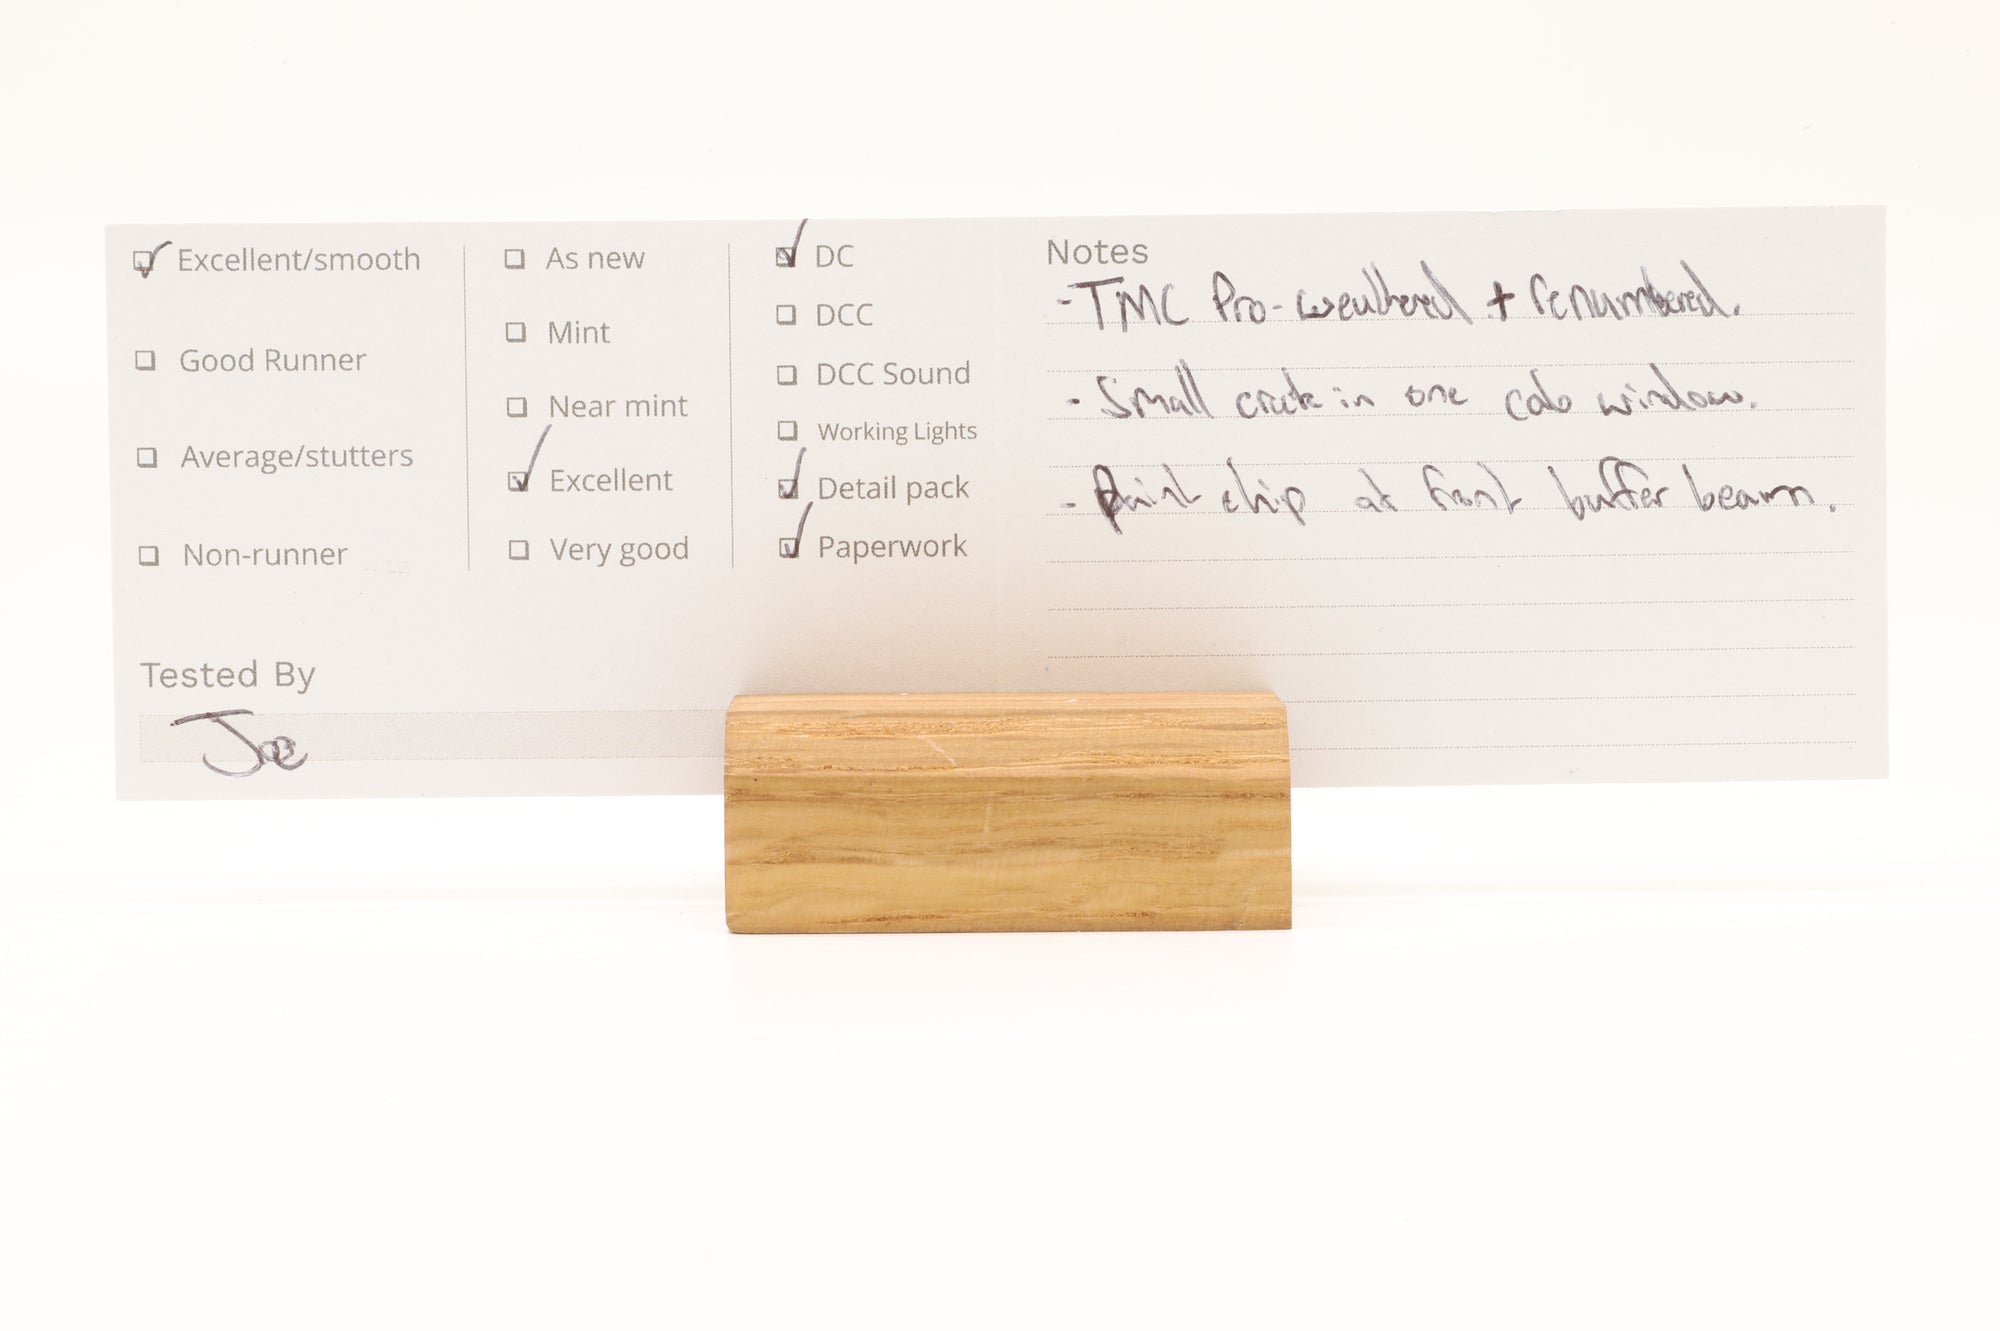 Excellent/smooth
Good Runner
Average/stutters
Non-runner
As new
Mint
Near mint
Excellent
Very good
DC
DCC
DCC Sound
Working Lights
Detail pack
Paperwork
Tested By
Joe
Notes
- TMC Pro-weathered + renumbered.
- Small crack in one cab window.
- Paint chip at front buffer beam.